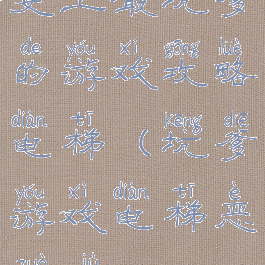 史上最坑爹
de yóu xì gōng lüè
的游戏攻略
diàn tī kēng diē
电梯(坑爹
yóu xì diàn tī è
游戏电梯恶